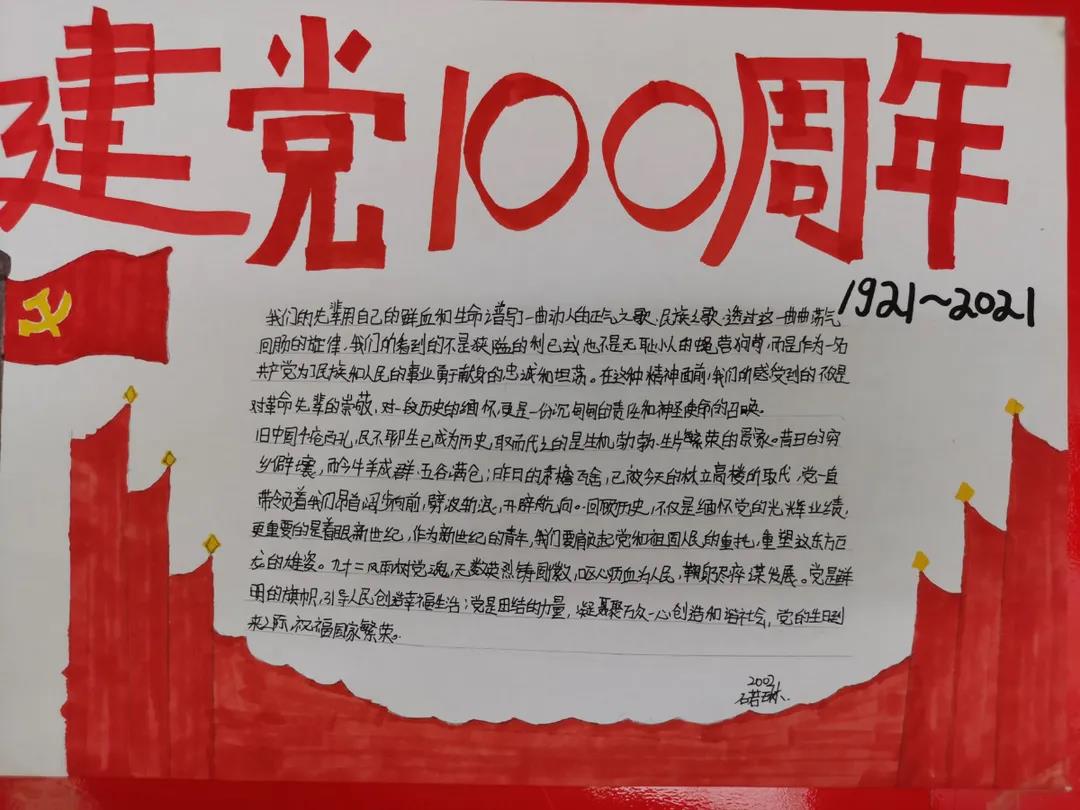 建党100周年
1921~2021
我们的先辈用自己的鲜血和生命谱写了一曲动人的正气之歌、民族之歌。透过这一曲曲荡气
回肠的旋律,我们所看到的不是狭隘的利己战,也不是无耻小人的蝇营狗苟,而是作为一名
共产党为了民族和人民的事业勇于献身的忠诚和坦荡。在这种精神面前,我们所感受到的不仅是
对革命先辈的崇敬,对一段历史的缅怀,更是一份沉甸甸的责任和神圣使命的召唤。
旧中国千疮百孔,民不聊生已成为历史,取而代之的是生机勃勃、一片繁荣的景象。昔日的穷
乡僻壤,而今牛羊成群、五谷满仓;昨日的茅檐瓦舍,已被今天的林立高楼所取代。党一直
带领着我们昂首阔步向前,劈波斩浪,开辟航向。回顾历史,不仅是缅怀党的光辉业绩,
更重要的是着眼新世纪,作为新世纪的青年,我们要肩负起党和祖国人民的重托,重塑这东方巨
龙的雄姿。九十二风雨树党魂,无数英烈铸国徽,呕心沥血为人民,鞠躬尽瘁谋发展。党是鲜
明的旗帜,引导人民创造幸福生活;党是团结的力量,凝聚万众一心创造和谐社会,党的生日到
来之际,祝福国家繁荣。
2002
石若琳